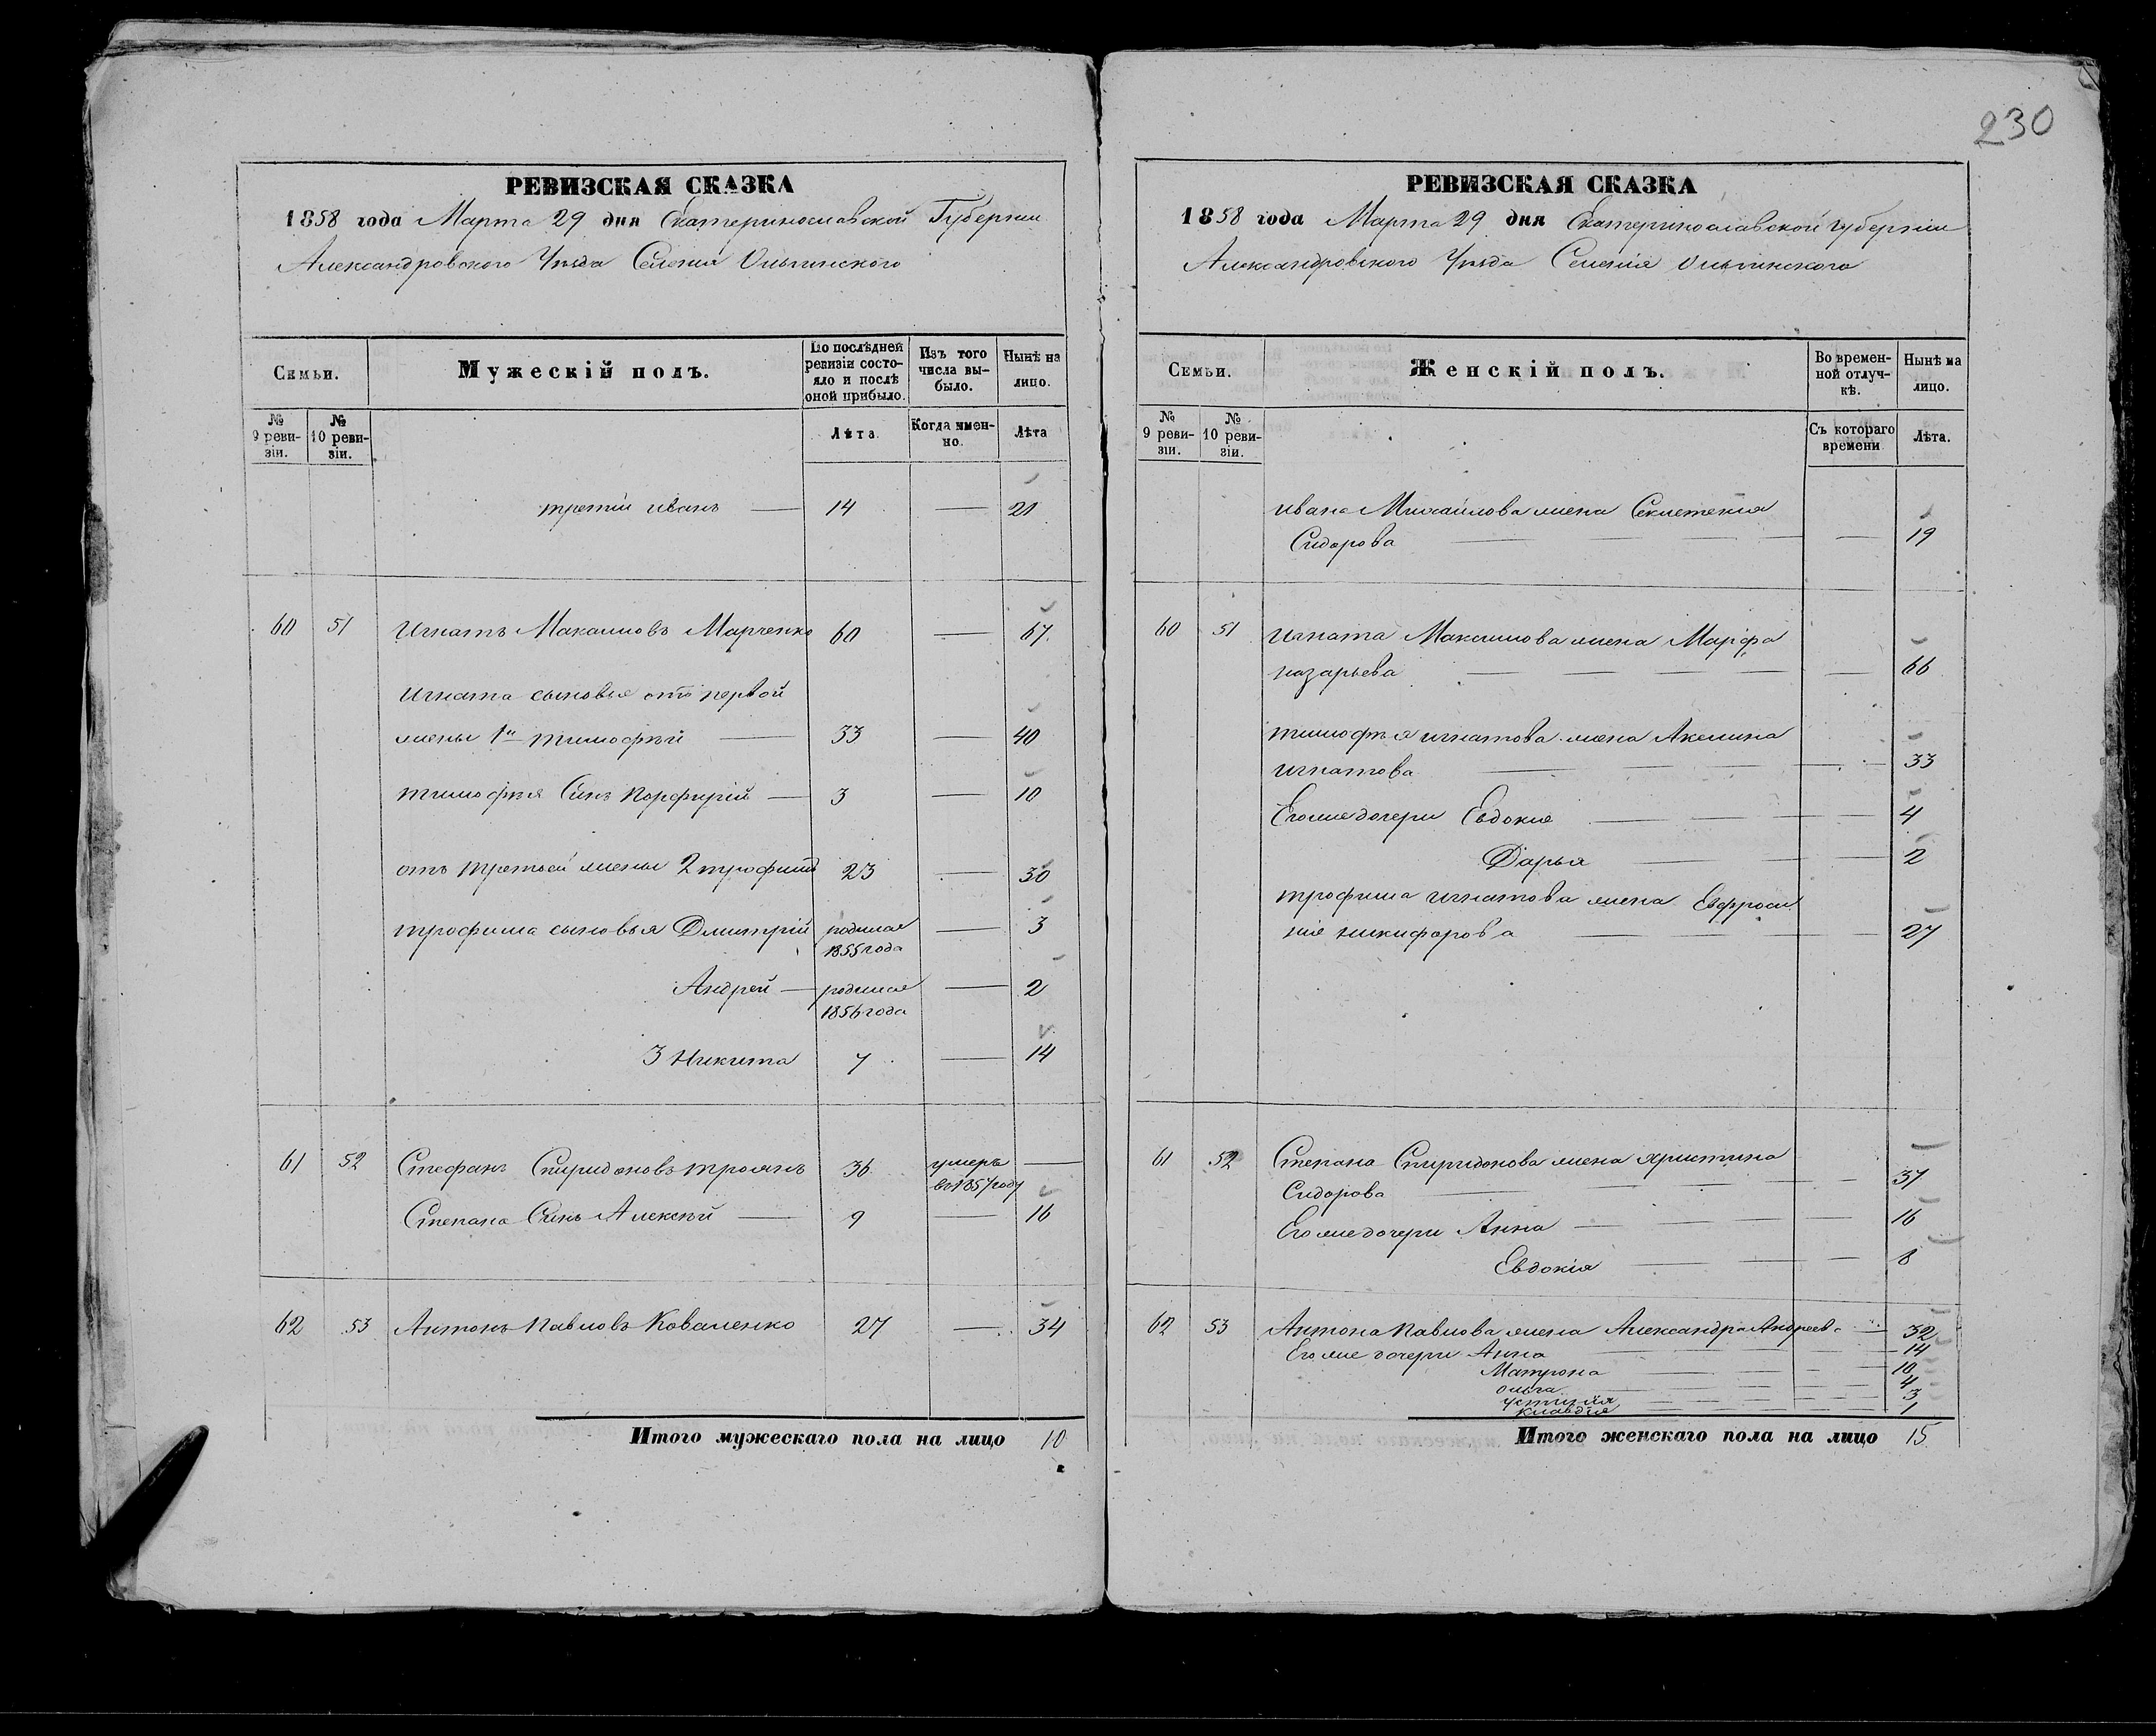 230
РЕВИЗСКАЯ СКАЗКА
1858 года Марта 29 дня Екатеринославской Губернии
Александровского Уѣзда Селения Ольгинского
Семьи.
Мужескій полъ.
По послѣдней ревизіи состояло и послѣ оной прибыло.
Изъ того числа выбыло.
Нынѣ на лицо.
№ 9 ревизіи.
№ 10 ревизіи.
Лѣта
Когда именно.
Лѣта
третій иванъ — 14 — 21
60 51 Игнатъ Максимовъ Марченко 60 — 67
Игната сыновья отъ первой
жены 1й тимофѣй — 33 — 40
тимофѣя Сынъ Порфирій — 3 — 10
отъ третьей жены 2 трофимъ 23 — 30
трофима сыновья Дмитрій родился — 3
1855 года
Андрей — родился — 2
1856 года
3 Никита 7 — 14
61 52 Стефанъ Спиридоновъ троянъ 36 умеръ —
въ 1857 году
Степана Сынъ Алексѣй — 9 — 16
62 53 Антонъ Павловъ Коваленко 27 — 34
Итого мужескаго пола на лицо 10
РЕВИЗСКАЯ СКАЗКА
1858 года Марта 29 дня Екатеринославской губернии
Александровского Уѣзда Селения Ольгинского
Семьи.
Женскій полъ.
Во временной отлучкѣ.
Нынѣ на лицо.
№ 9 ревизіи.
№ 10 ревизіи.
Съ котораго времени
Лѣта.
ивана Михайлова жена Секлетекия
Сидорова — 19
60 51 Игната Максимова жена Марфа
назарьева — 66
тимофѣя игнатова жена Акелина
игнатова — 33
Его же дочери Евдокия — 4
Дарья — 2
трофима игнатова жена Евфроси
ния никифорова — 27
61 52 Степана Спиридонова жена Христина
Сидорова — 37
Его же дочери Анна — 16
Евдокія — 8
62 53 Антона Павлова жена Александра Андреева — 32
Его же дочери Анна — 14
Матрона — 10
ольга — 4
устинія — 3
Клавдія — 1
Итого женскаго пола на лицо 15